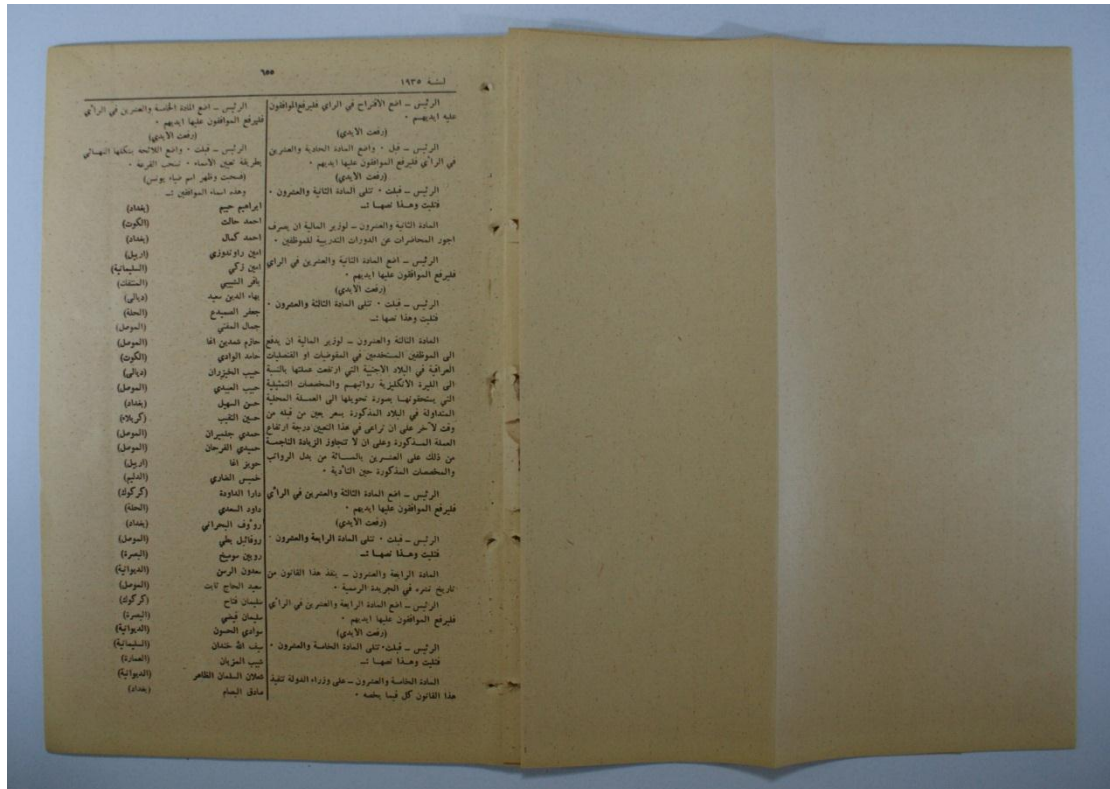 ٦٥٥
لسنة ١٩٣٥
الرئيس ـ اضع الاقتراح في الراي فليرفع الموافقون
عليه ايديهم ٠
(رفعت الايدي)
الرئيس ـ قبل ٠ واضع المادة الحادية والعشرين
في الرأي فليرفع الموافقون عليها ايديهم ٠
(رفعت الايدي)
الرئيس ـ قبلت ٠ تتلى المادة الثانية والعشرون ٠
فتليت وهـذا نصهـا :ـ
المادة الثانية والعشرون ـ لوزير المالية ان يصرف
اجور المحاضرات عن الدورات التدريبية للموظفين ٠
الرئيس ـ اضع المادة الثانية والعشرين في الراي
فليرفع الموافقون عليها ايديهم ٠
(رفعت الايدي)
الرئيس ـ قبلت ٠ تتلى المادة الثالثة والعشرون ٠
فتليت وهذا نصها :ـ
المادة الثالثة والعشرون ـ لوزير المالية ان يدفع
الى الموظفين المستخدمين في المفوضيات او القنصليات
العراقية في البلاد الاجنبية التي ارتفعت عملتها بالنسبة
الى الليرة الانكليزية رواتبهـم والمخصصات التمثيلية
التي يستحقونهـا بصورة تحويلها الى العمـلة المحلية
المتداولة في البلاد المذكورة بسعر يعين من قبله من
وقت لآخر على ان تراعى في هذا التعيين درجة ارتفاع
العملة المـذكورة وعلى ان لا تتجاوز الزيادة الناجمـة
من ذلك على العشـرين بالمـائة من بدل الرواتب
والمخصصات المذكورة حين التأدية ٠
الرئيس ـ اضع المادة الثالثة والعشرين في الرأي
فليرفع الموافقون عليها ايديهم ٠
(رفعت الايدي)
الرئيس ـ قبلت ٠ تتلى المادة الرابعة والعشرون ٠
فتليت وهـذا نصهـا :ـ
المادة الرابعة والعشرون ـ ينفذ هذا القانون من
تاريخ نشره في الجريدة الرسمية ٠
الرئيس ـ اضع المادة الرابعة والعشرين في الرأي
فليرفع الموافقون عليها ايديهم ٠
(رفعت الايدي)
الرئيس ـ قبلت٠ تتلى المادة الخامسة والعشرون ٠
فتليت وهـذا نصهـا :ـ
المادة الخامسة والعشرون ـ على وزراء الدولة تنفيذ
هذا القانون كل فيما يخصه ٠
الرئيس ـ اضع المادة الخامسة والعشرين في الرأي
فليرفع الموافقون عليها ايديهم ٠
(رفعت الايدي)
الرئيس ـ قبلت ٠ واضع اللائحة بشكلها النهائي
بطريقة تعيين الاسماء ٠ تسحب القرعة ٠
(فسحبت وظهر اسم ضياء يونس)
وهذه اسماء الموافقين :ـ
ابراهيم حييم (بغداد)
احمد حالت (الكوت)
احمد كمال (بغداد)
امين راوندوزي (اربيل)
امين زكي (السليمانية)
باقر الشبيبي (المنتفك)
بهاء الدين سعيد (ديالى)
جعفر الصميدع (الحلة)
جمال المفتي (الموصل)
حازم شمدين اغا (الموصل)
حامد الوادي (الكوت)
حبيب الخيزران (ديالى)
حبيب العبيدي (الموصل)
حسن السهيل (بغداد)
حسين النقيب (كربلاء)
حمدي جلميران (الموصل)
حميدي الفرحان (الموصل)
حويز اغا (اربيل)
خميس الضاري (الدليم)
دارا الداودة (كركوك)
داود السعدي (الحلة)
رؤوف البحراني (بغداد)
روفائيل بطي (الموصل)
روبين سوميخ (البصرة)
سعدون الرسن (الديوانية)
سعيد الحاج ثابت (الموصل)
سليمان فتاح (كركوك)
سليمان فيضي (البصرة)
سوادي الحسون (الديوانية)
سيف الله خندان (السليمانية)
شبيب المزبان (العمارة)
شعلان السلمان الظاهر (الديوانية)
صادق البصام (بغداد)